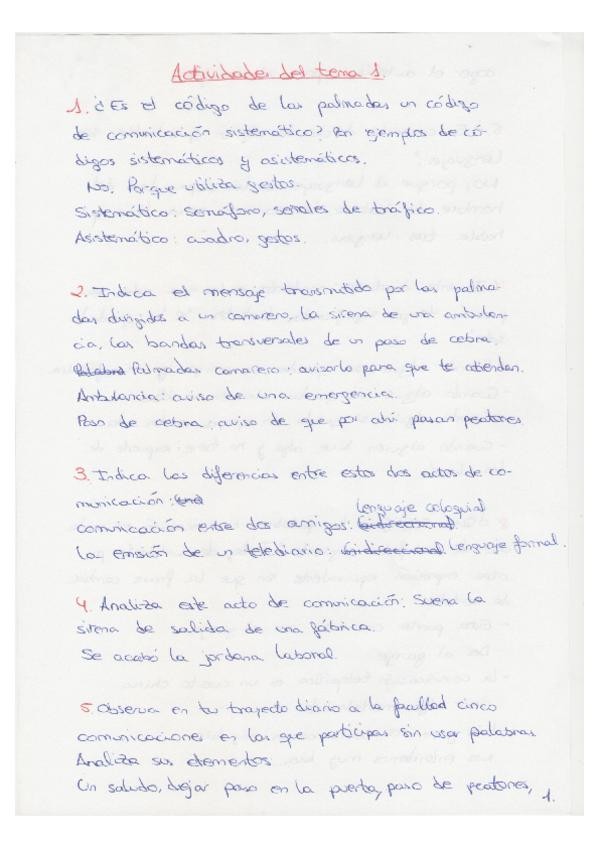 Actividades del tema 1
1. ¿Es el código de las palmadas un código
de comunicación sistemático? Pon ejemplos de có-
digos sistemáticos y asistemáticos.
No. Porque utiliza gestos.
Sistemático: Semáforo, señales de tráfico.
Asistemático: cuadro, gestos.
2. Indica el mensaje transmitido por las palma-
das dirigidos a un camarero, la sirena de una ambulan-
cia, las bandas transversales de un paso de cebra.
Palmadas camarero: avisarlo para que te atiendan.
Ambulancia: aviso de una emergencia.
Paso de cebra: aviso de que por ahí pasan peatones.
3. Indica las diferencias entre estos dos actos de co-
municación:
Lenguaje coloquial
comunicación entre dos amigos: bidireccional
la emisión de un telediario: unidireccional. Lenguaje formal.
4. Analiza este acto de comunicación: Suena la
sirena de salida de una fábrica.
Se acabó la jordana laboral.
5. Observa en tu trayecto diario a la facultad cinco
comunicaciones en las que participas sin usar palabras
Analiza sus elementos.
Un saludo, dejar paso en la puerta, paso de peatones,
1.